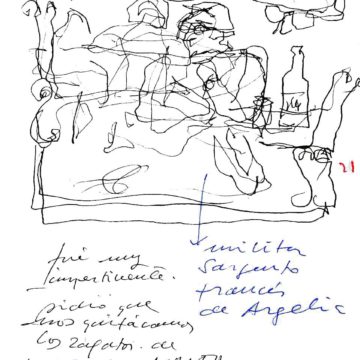 21
fué muy
impertinente.
pidió que
nos quitáramos
los zapatos. de
militar
sargento
francés
de Argelia